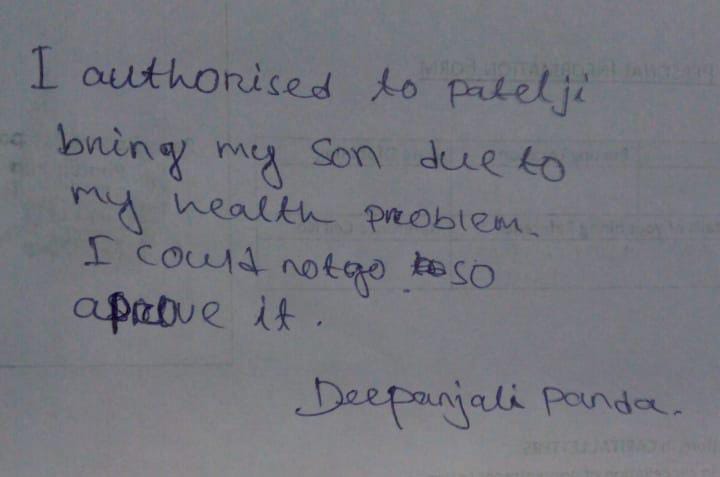 I authorised to patelji
bring my son due to
my health problem.
I could not go so
aprove it.
Deepanjali Panda.
PERSONAL INFORMATION FORM